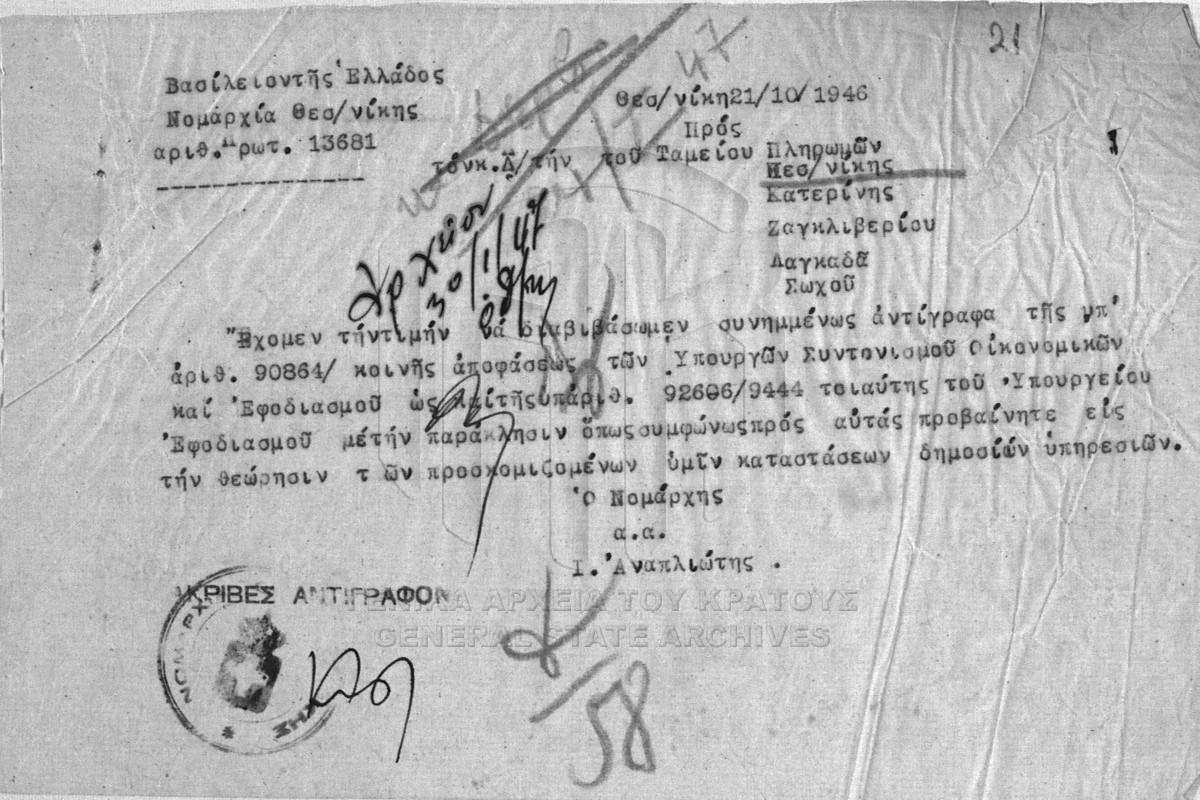 21
Βασίλειοντῆς Ἑλλάδος
Νομαρχία Θεσ/νίκης
ἀριθ. Πρωτ. 13681
Θεσ/νίκη21/10/1946
Πρός
τόνκ.Δ/τήν τοῦ Ταμείου Πληρωμῶν
Θεσ/νίκης
Κατερίνης
Ζαγκλιβερίου
Λαγκαδᾶ
Σωχοῦ
Ἀρχεῖον
30/1/47
Ἔχομεν τήντιμήν νά διαβιβάσωμεν συνημμένως ἀντίγραφα τῆς ὑπ'
ἀριθ. 90864/ κοινῆς ἀποφάσεως τῶν Ὑπουργῶν Συντονισμοῦ Οἰκονομικῶν
καί Ἐφοδιασμοῦ ὡς καίτῆςὑπἀριθ. 92606/9444 τοιαύτης τοῦ Ὑπουργείου
Ἐφοδιασμοῦ μέτήν παράκλησιν ὅπωςσυμφώνωςπρός αὐτάς προβαίνητε εἰς
τήν θεώρησιν τ ῶν προσκομιζομένων ὑμῖν καταστάσεων δημοσίων ὑπηρεσιῶν.
Ὁ Νομάρχης
α.α.
Ι. Ἀναπλιώτης .
ΑΚΡΙΒΕΣ ΑΝΤΙΓΡΑΦΟΝ
ΓΕΝΙΚΑ ΑΡΧΕΙΑ ΤΟΥ ΚΡΑΤΟΥΣ
GENERAL STATE ARCHIVES
58